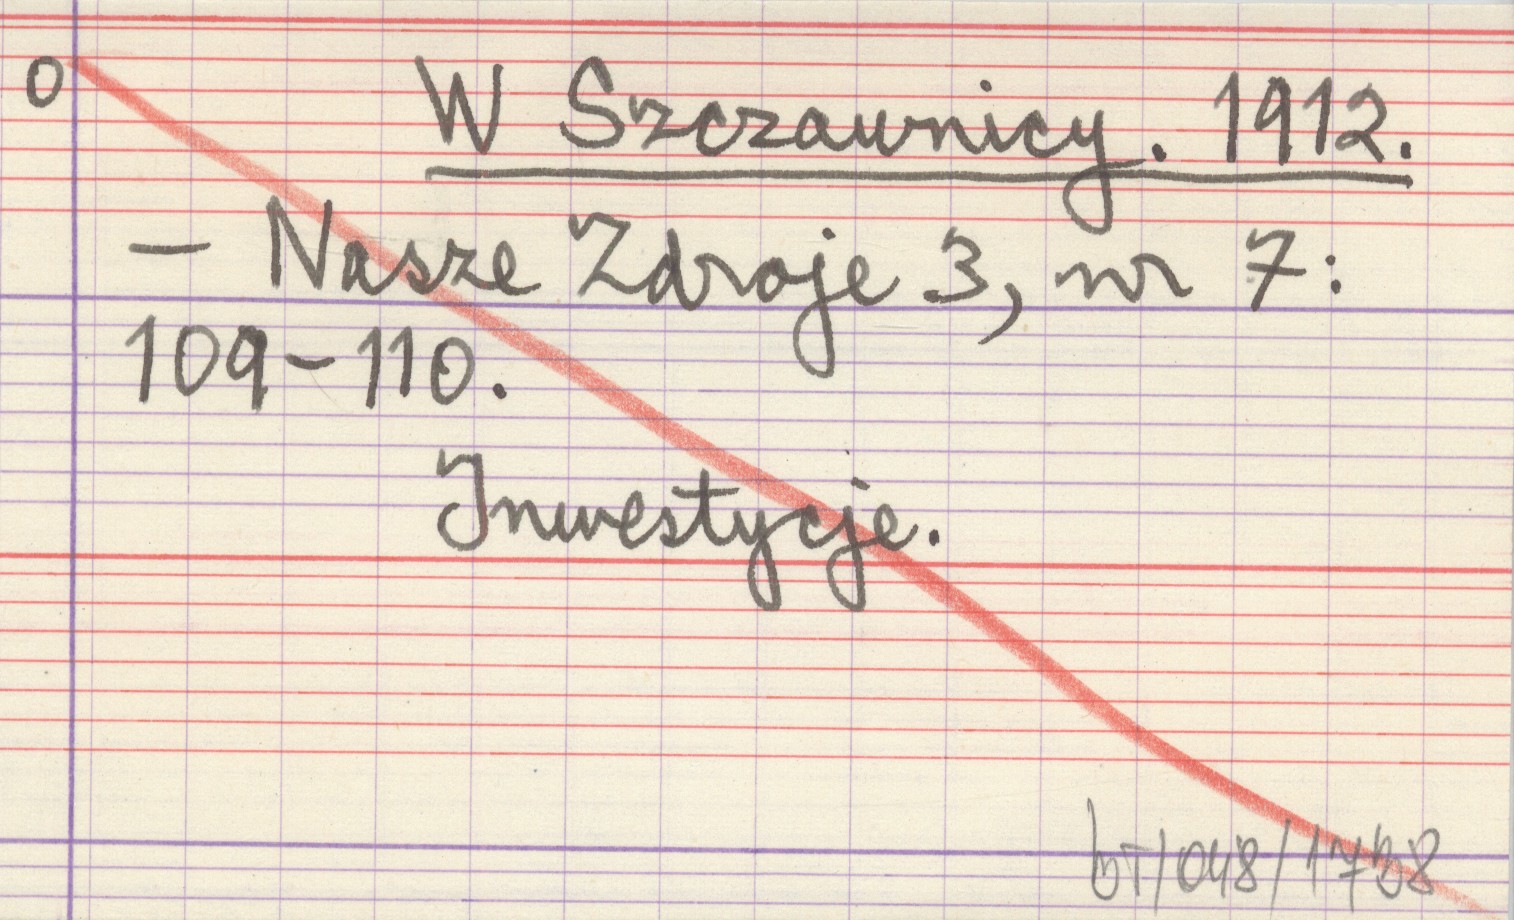 0
W Szczawnicy. 1912.
— Nasze Zdroje 3, nr 7:
109-110.
Inwestycje.